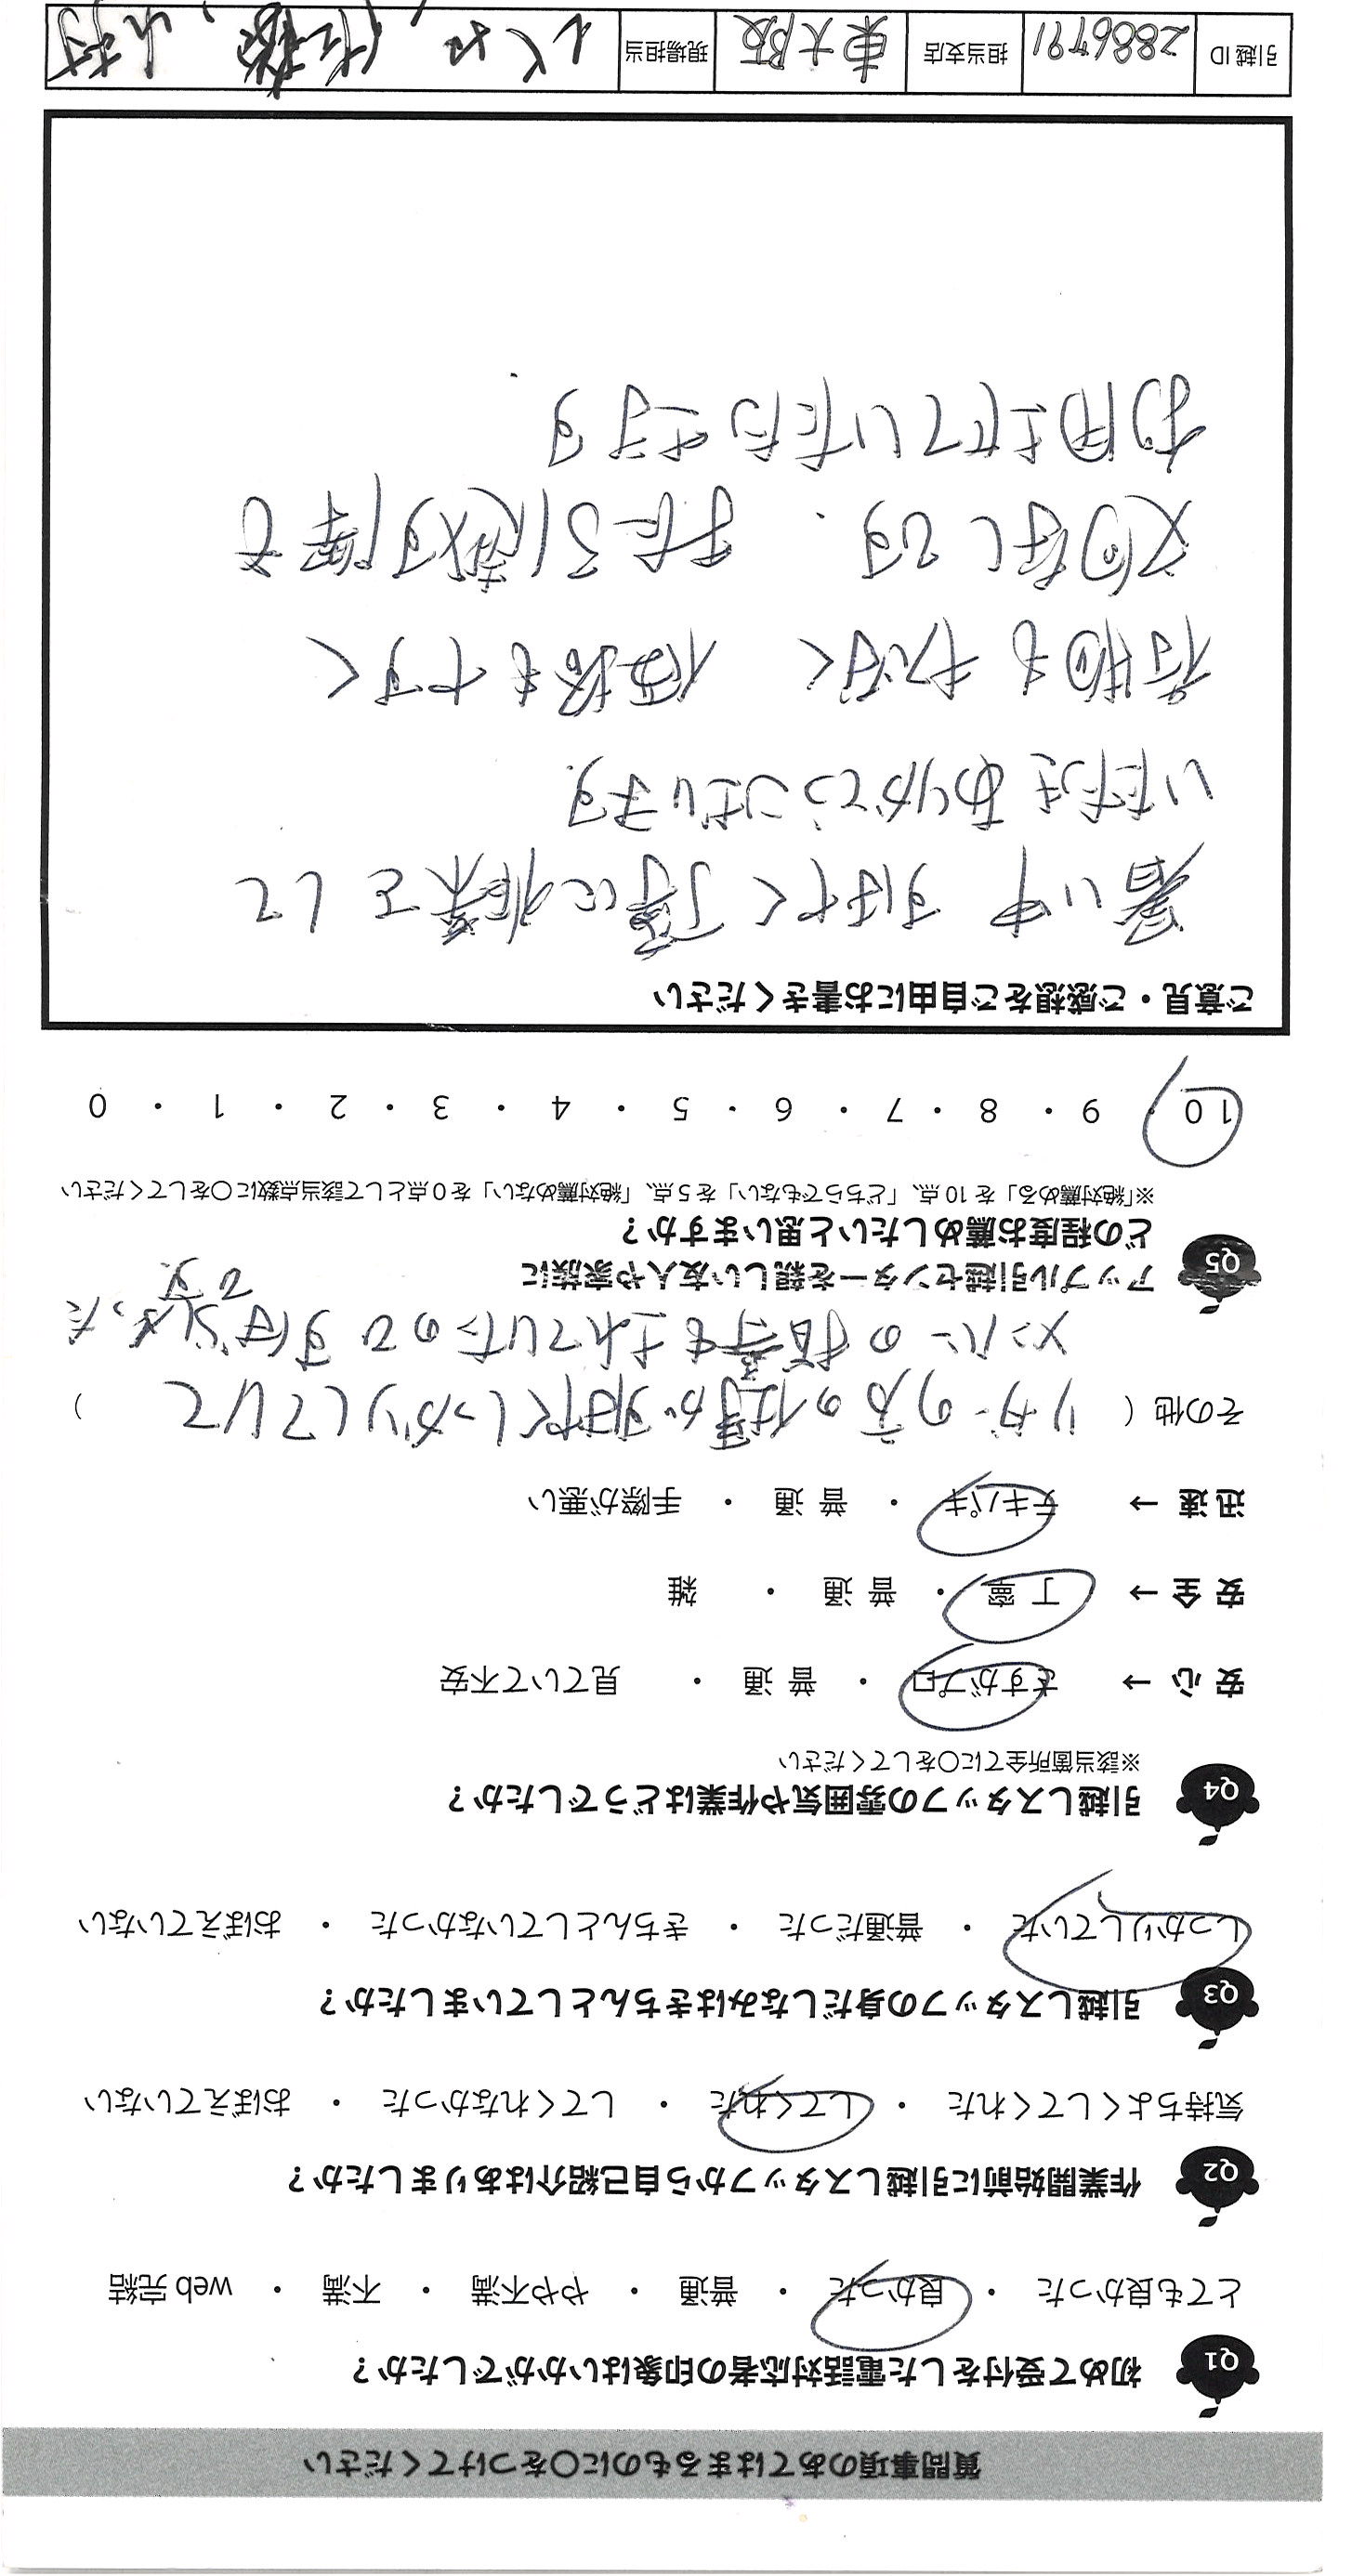 質問事項のあてはまるものに○をつけてください
Q1 初めて受付をした電話対応者の印象はいかがでしたか？
とても良かった ・ 良かった ・ 普通 ・ やや不満 ・ 不満 ・ web 完結
Q2 作業開始前に引越しスタッフから自己紹介はありましたか？
気持ちよくしてくれた ・ してくれた ・ してくれなかった ・ おぼえていない
Q3 引越しスタッフの身だしなみはきちんとしていましたか？
しっかりしていた ・ 普通だった ・ きちんとしていなかった ・ おぼえていない
Q4 引越しスタッフの雰囲気や作業はどうでしたか？
※該当箇所全てに○をしてください
安 心 → さすがプロ ・ 普 通 ・ 見ていて不安
安 全 → 丁 寧 ・ 普 通 ・ 雑
迅 速 → テキパキ ・ 普 通 ・ 手際が悪い
その他（ リーダーの方の仕事がすばやくしっかりしていて ）
メンバーの指導もされていたのですばらしかった
です。
Q5 アップル引越センターを親しい友人や家族に
どの程度お薦めしたいと思いますか？
※「絶対薦める」を 10 点、「どちらでもない」を 5 点、「絶対薦めない」を 0 点として該当点数に○をしてください
10 ・ 9 ・ 8 ・ 7 ・ 6 ・ 5 ・ 4 ・ 3 ・ 2 ・ 1 ・ 0
ご意見・ご感想をご自由にお書きください
暑い中 すばやく丁寧に作業をして
いただき ありがとうございます。
荷物も 価格もやすく
文句なしです. また引越す際も
お用させていただきます.
引越 ID 2886791 担当支店 東大阪 現場担当 佐藤, 山村